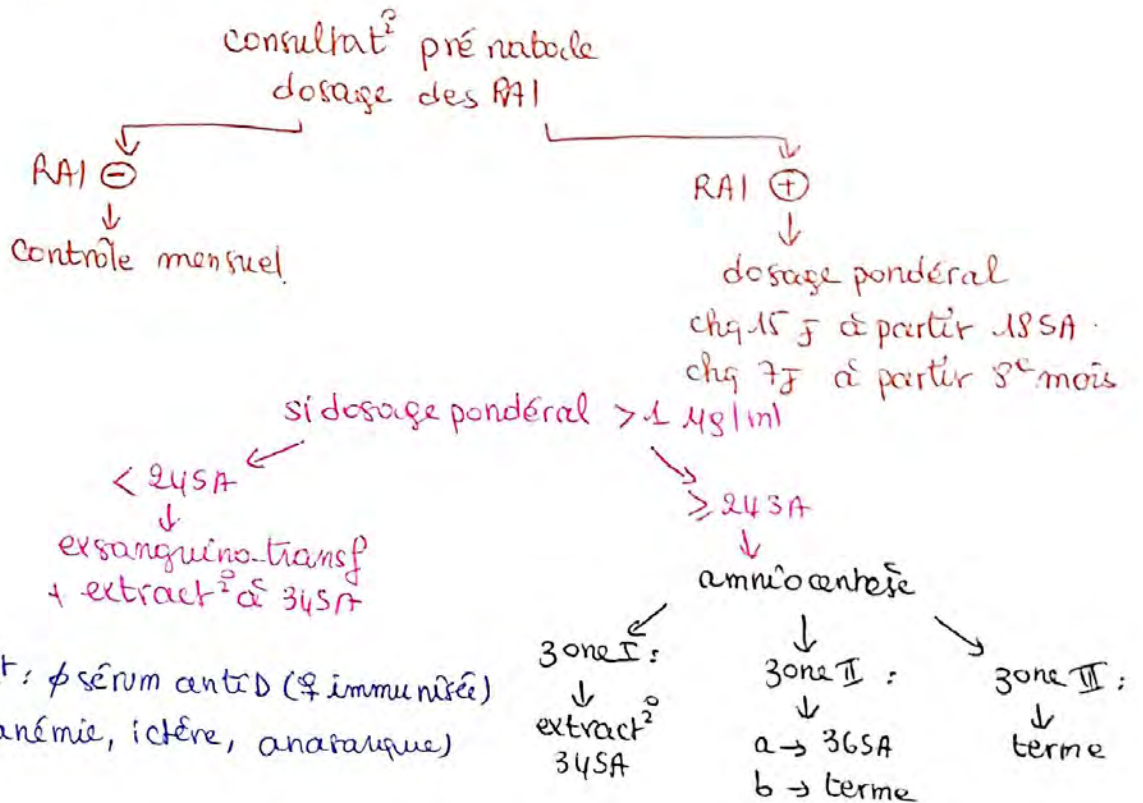 consultat° pré natale
dosage des RAI
RAI ⊖
RAI ⊕
↓
↓
Contrôle mensuel
dosage pondéral
chq 15 j à partir 18 SA.
chq 7j à partir 8e mois
si dosage pondéral > 1 µg/ml
< 24SA
≥ 24SA
↓
↓
exsanguino-transf
+ extract° à 34SA
amniocentèse
zone I :
zone II :
zone III :
↓
↓
↓
extract°
34SA
a → 36SA
b → terme
terme
t : ϕ sérum anti D (♀ immunisée)
anémie, ictère, anasarque)